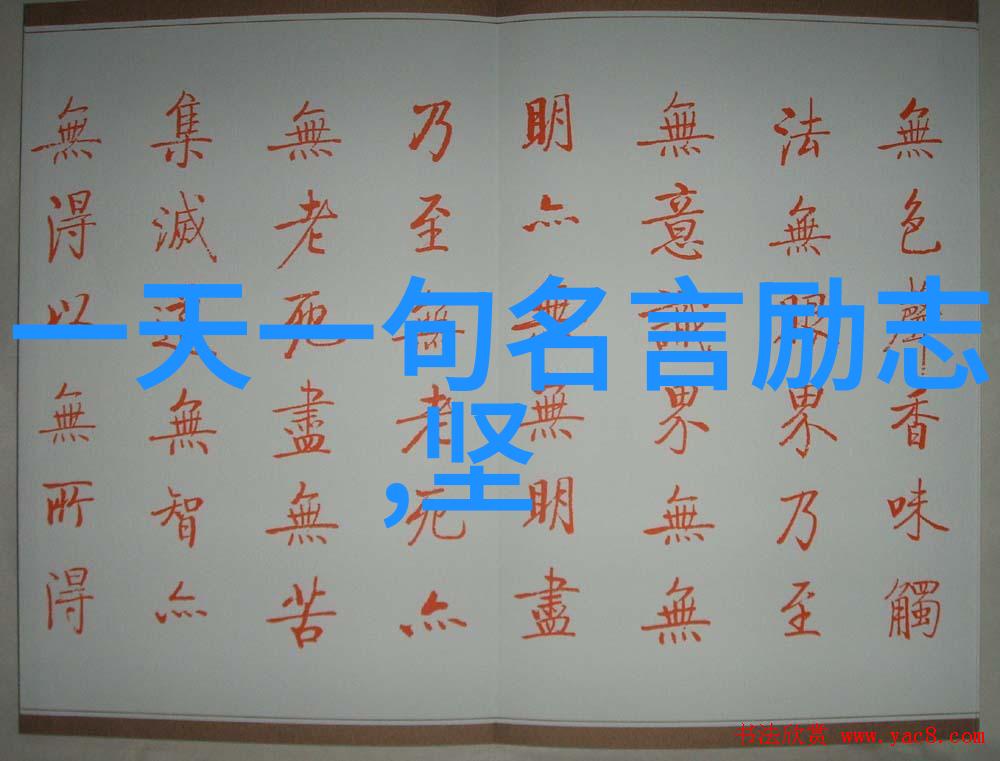 無色聲香味觸
法無眼界乃至
無意識界無無
明亦無無明盡
乃至無老死亦
無老死盡無苦
集滅道無智亦
無得以無所得
一天一句名言励志
,坚
书法欣赏 www.yac8.com